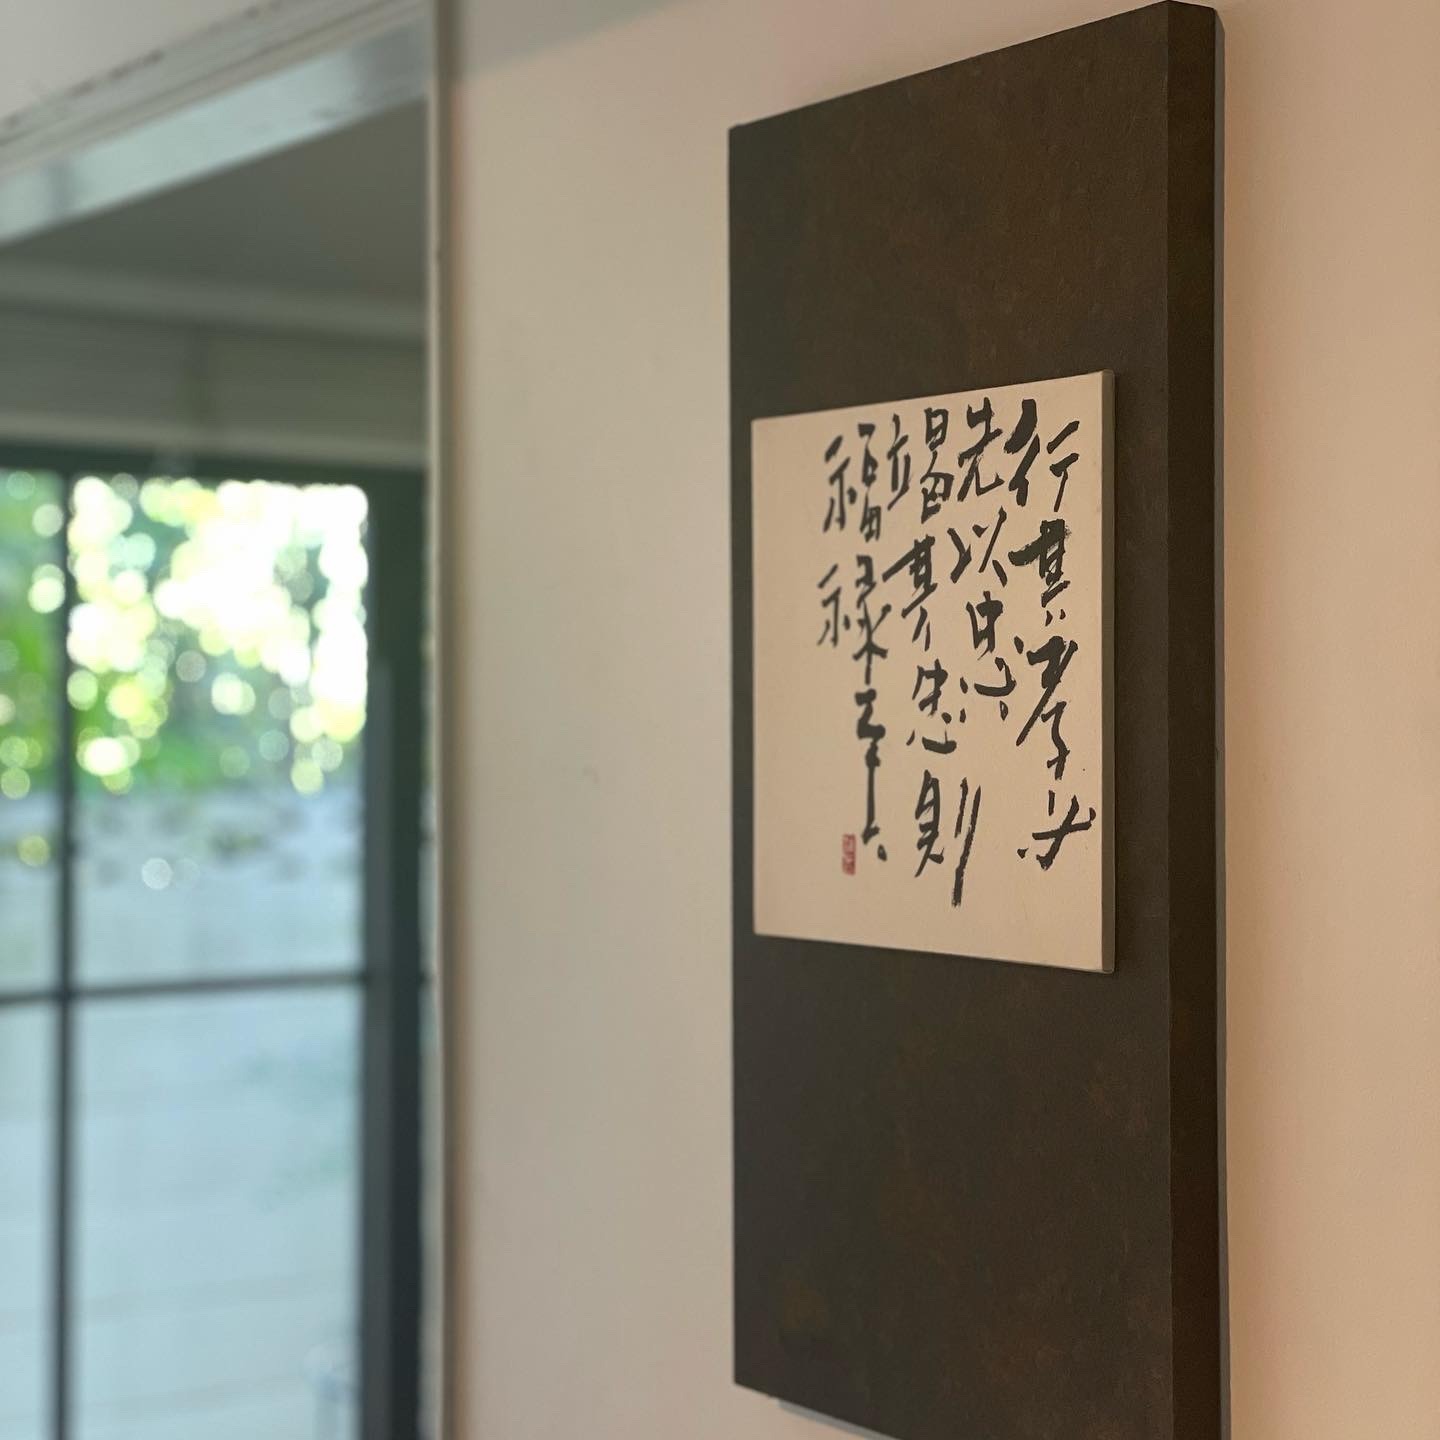 行其孝必
先以忠
竭其忠則
福祿至矣